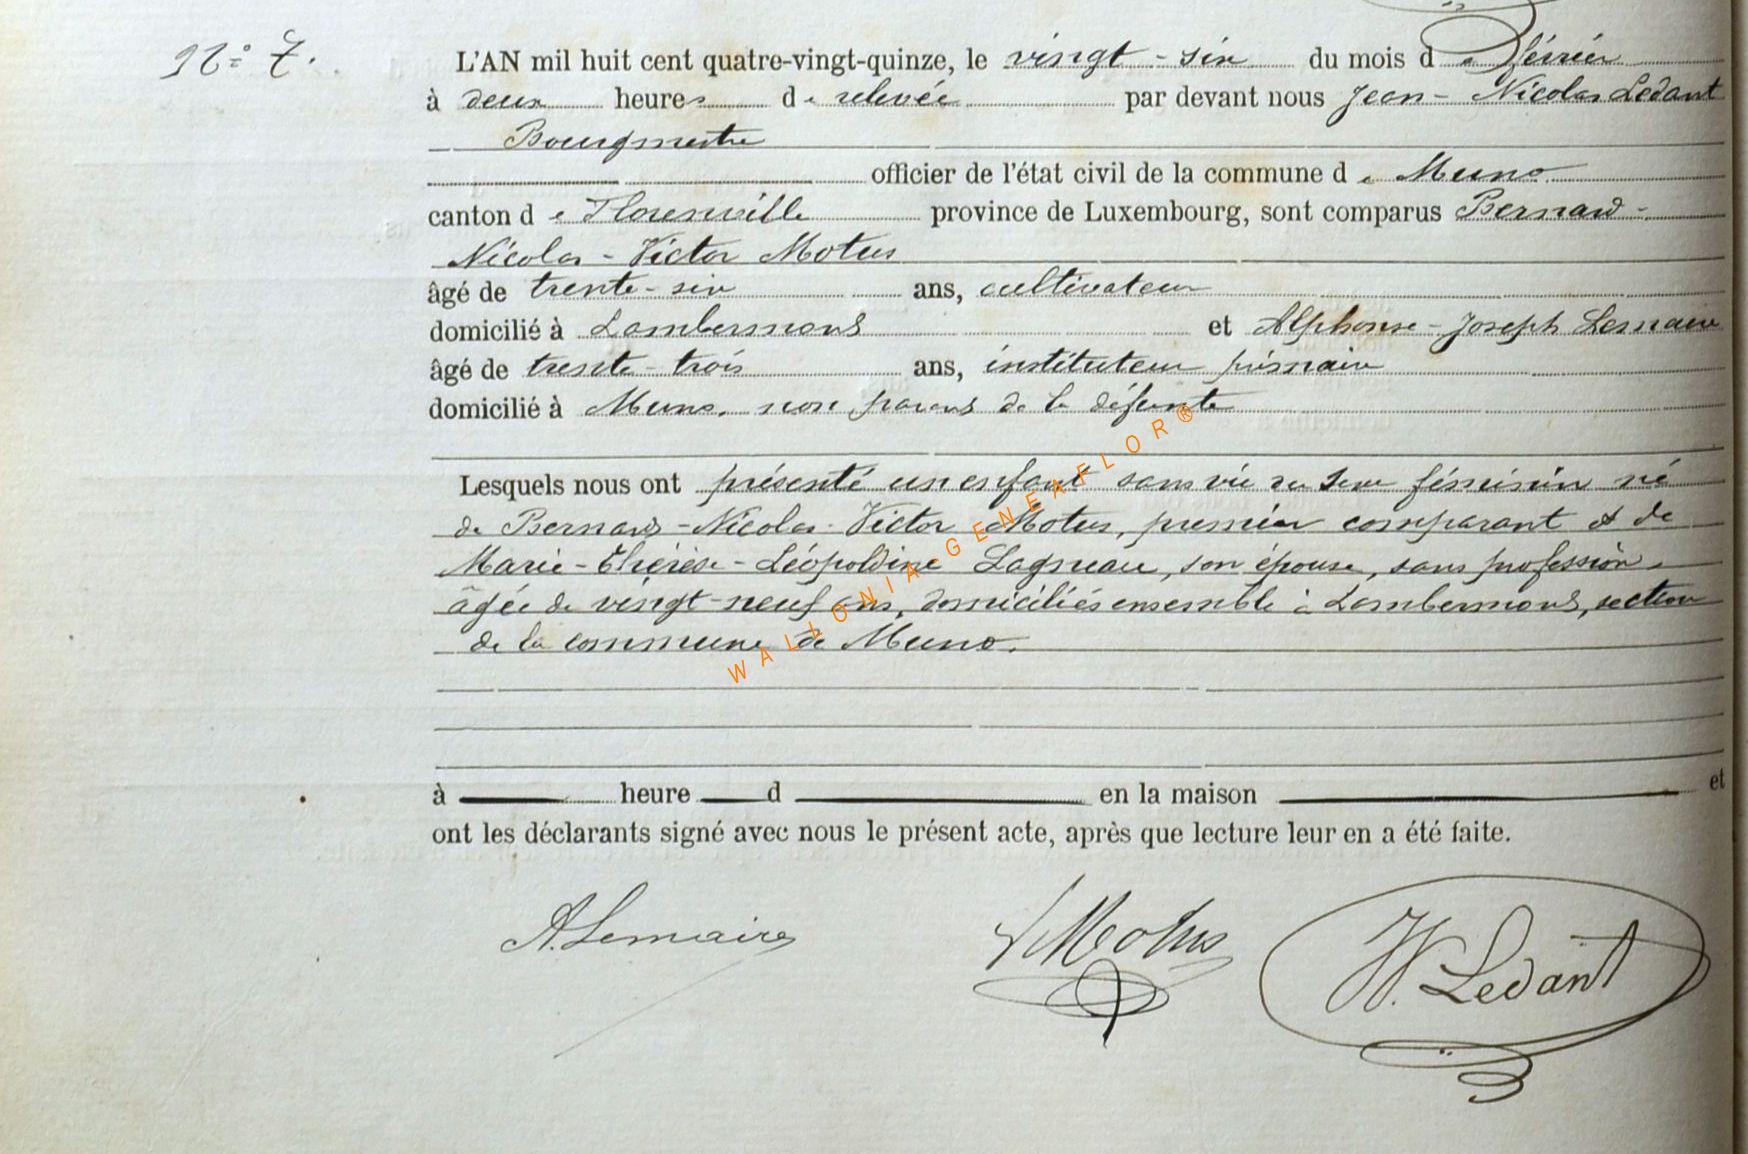 N° 7.
L'AN mil huit cent quatre-vingt-quinze, le vingt-six du mois de février
à deux heures de relevée par devant nous Jean-Nicolas Ledant
Bourgmestre
officier de l'état civil de la commune de Muno
canton de Florenville province de Luxembourg, sont comparus Bernard-
Nicolas-Victor Motus
âgé de trente-six ans, cultivateur
domicilié à Lambermont et Alphonse-Joseph Lemaire
âgé de trente-trois ans, instituteur primaire
domicilié à Muno, non parens de la défunte
Lesquels nous ont présenté un enfant sans vie du sexe féminin né
de Bernard-Nicolas-Victor Motus, premier comparant et de
Marie-Thérèse-Léopoldine Lagneau, son épouse, sans profession
âgée de vingt-neuf ans, domiciliés ensemble à Lambermont, section
de la commune de Muno.
WALLONIA GENEAFLOR®
à heure d en la maison et
ont les déclarants signé avec nous le présent acte, après que lecture leur en a été faite.
A. Lemaire Motus Ledant